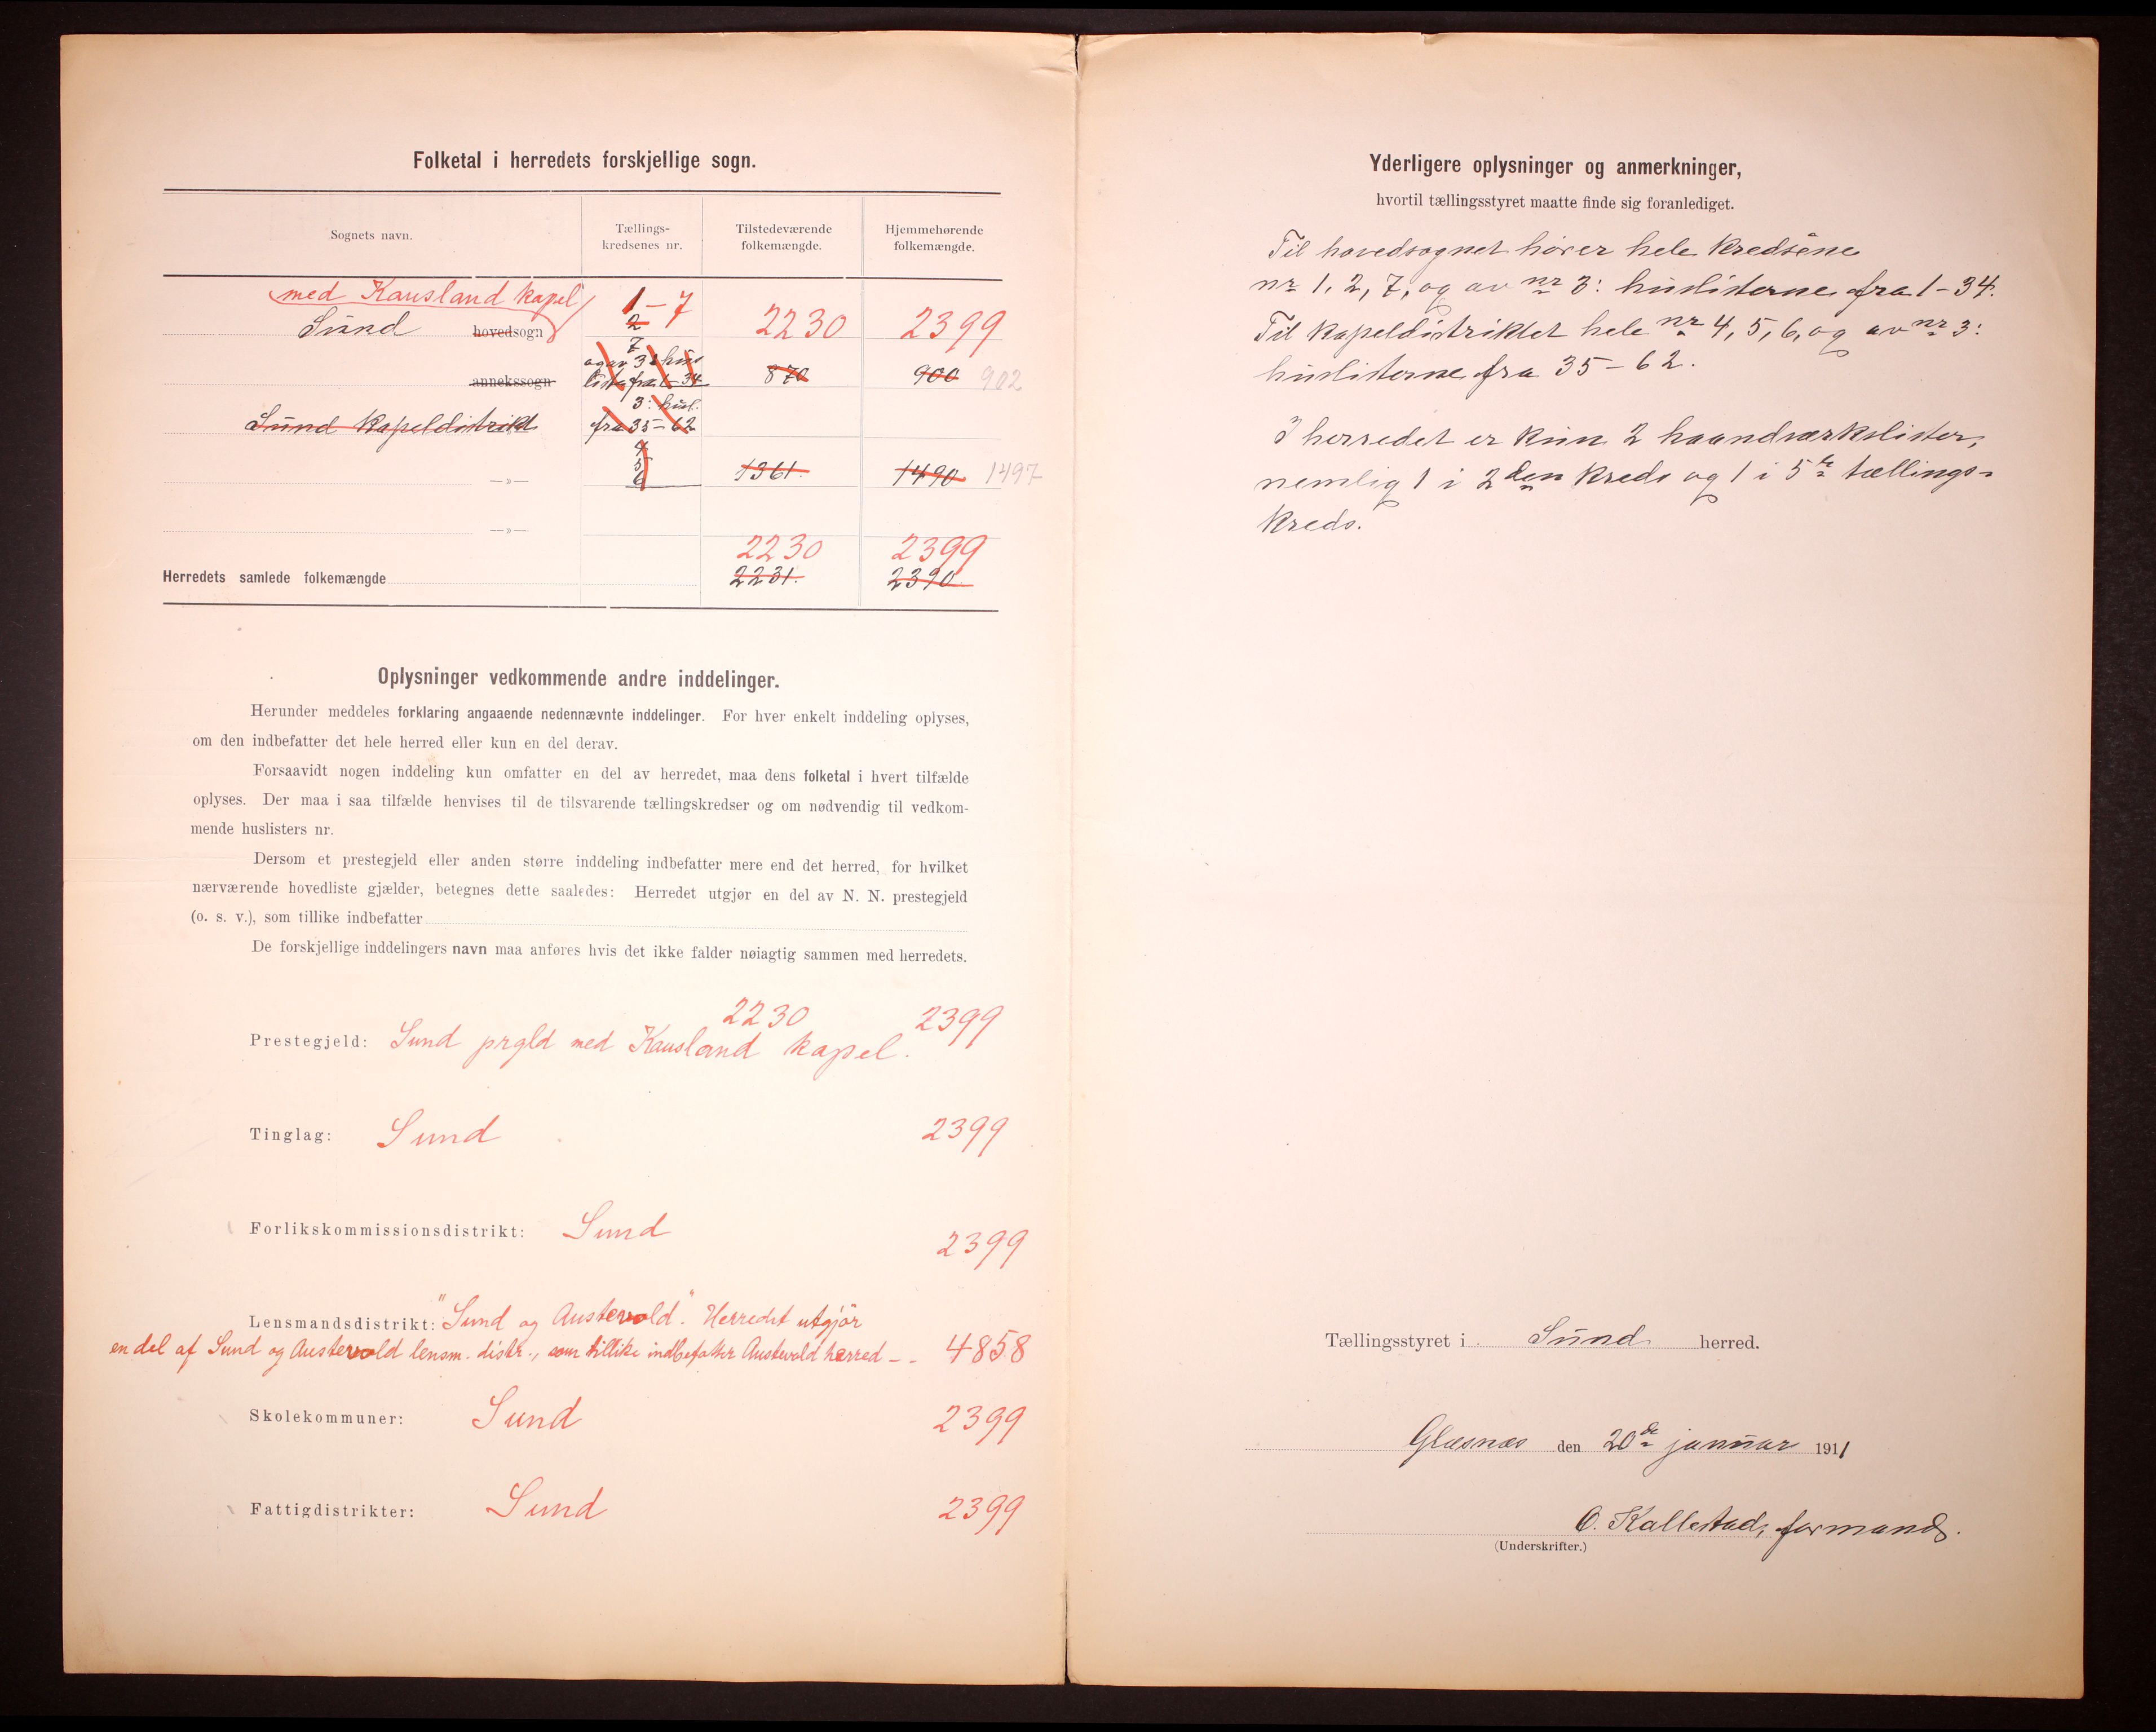 Folketal i herredets forskjellige sogn.
Sognets navn.
Tællings-
kredsenes nr.
Tilstedeværende
folkemængde.
Hjemmehørende
folkemængde.
med Kausland kapel
Sund hovedsogn
1-7
2
2230
2399
7
og av 3: hus
liste fra 1-34
annekssogn
870
900 902
3: husl.
Sund Kapeldistrikt
fra 35-62
4
5
6
—»—
1361.
1490 1497
—»—
2230
2399
Herredets samlede folkemængde
2231.
2390.
Oplysninger vedkommende andre inddelinger.
Herunder meddeles forklaring angaaende nedennævnte inddelinger. For hver enkelt inddeling oplyses,
om den indbefatter det hele herred eller kun en del derav.
Forsaavidt nogen inddeling kun omfatter en del av herredet, maa dens folketal i hvert tilfælde
oplyses. Der maa i saa tilfælde henvises til de tilsvarende tællingskredser og om nødvendig til vedkom-
mende huslisters nr.
Dersom et prestegjeld eller anden større inddeling indbefatter mere end det herred, for hvilket
nærværende hovedliste gjælder, betegnes dette saaledes: Herredet utgjør en del av N. N. prestegjeld
(o. s. v.), som tillike indbefatter
De forskjellige inddelingers navn maa anføres hvis det ikke falder nøiagtig sammen med herredets.
2230 2399
Prestegjeld: Sund prgld med Kausland kapel.
Tinglag: Sund 2399
Forlikskommissionsdistrikt: Sund 2399
Lensmandsdistrikt: "Sund og Austevold". Herredet utgjör
en del af Sund og Austevold lensm. distr., som tillike indbefatter Austevold herred -- 4858
Skolekommuner: Sund 2399
Fattigdistrikter: Sund 2399
Yderligere oplysninger og anmerkninger,
hvortil tællingsstyret maatte finde sig foranlediget.
Til hovedsognet hører hele Kredsene
nr 1, 2, 7, og av nr 3: huslisterne fra 1-34.
Til Kapeldistriktet hele nr 4, 5, 6, og av nr 3:
huslisterne fra 35-62.
I herredet er kun 2 haandverkslister,
nemlig 1 i 2den Kreds og 1 i 5te tællings-
Kreds.
Tællingsstyret i Sund herred.
Glesnæs den 20de januar 1911
O. Kallestad, formand.
(Underskrifter.)